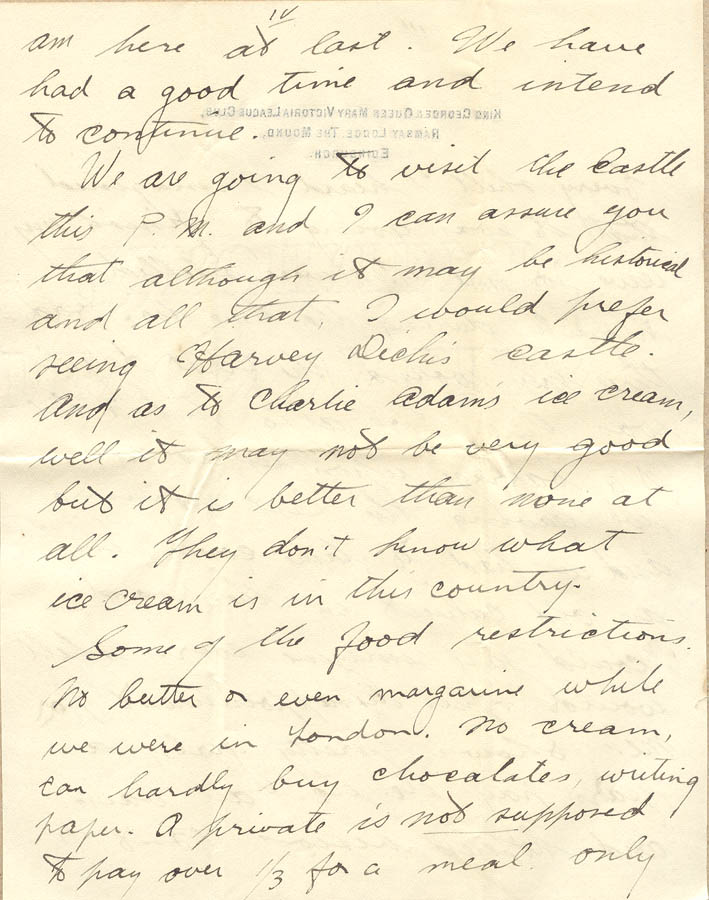 IV
am here at last. We have
had a good time and intend
to continue.
KING GEORGE & QUEEN MARY VICTORIA LEAGUE CLUB,
RAMSAY LODGE, THE MOUND,
EDINBURGH.
We are going to visit the Castle
this P.M. and I can assure you
that although it may be historical
and all that, I would prefer
seeing Harvey castle.
And as to Charlie Adam's ice cream,
well it may not be very good
but it is better than none at
all. They don't know what
ice cream is in this country.
Some of the food restrictions.
No butter or even margarine while
we were in London. No cream,
can hardly buy chocalates, writing
paper. A private is not supposed
to pay over 1/3 for a meal. only